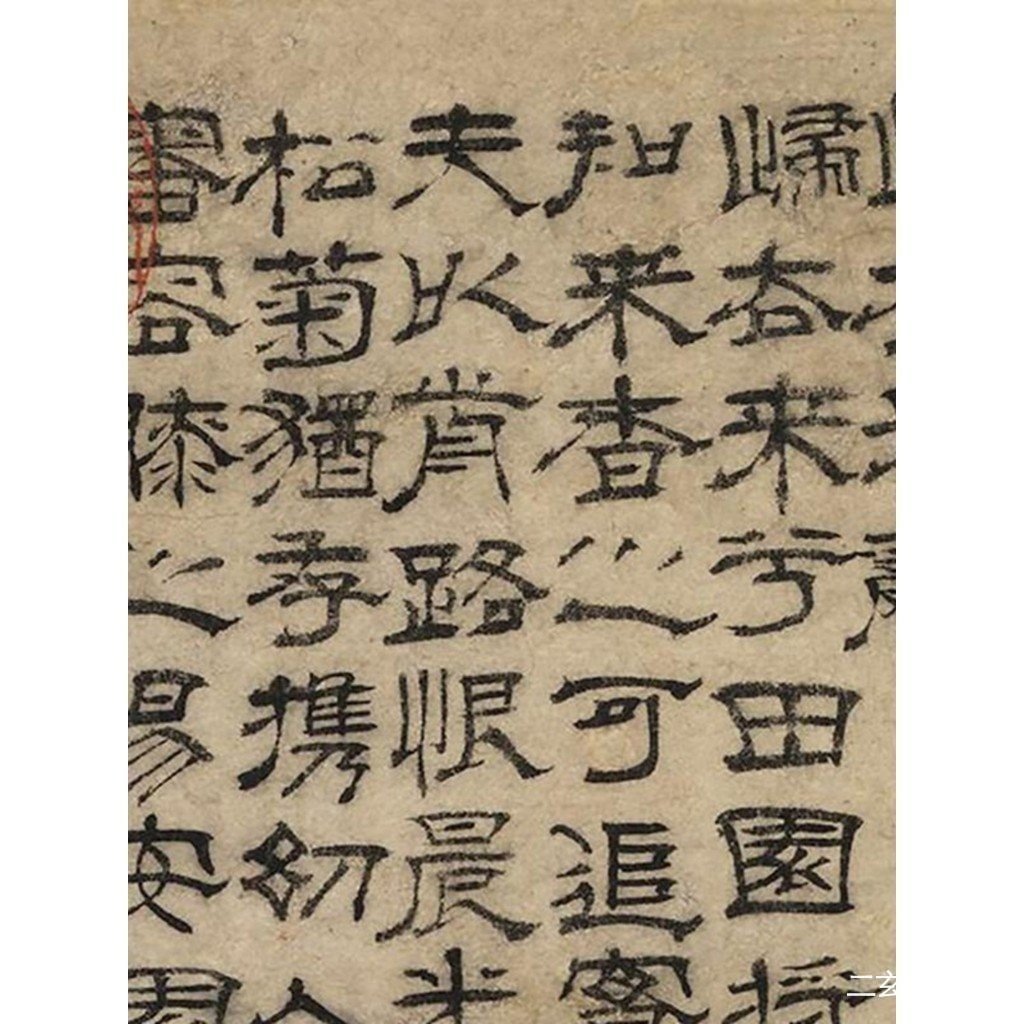 歸去來兮田園將
知來者之可追
夫以前路恨晨光
松菊猶存携幼入
審容膝之易安園
二玄